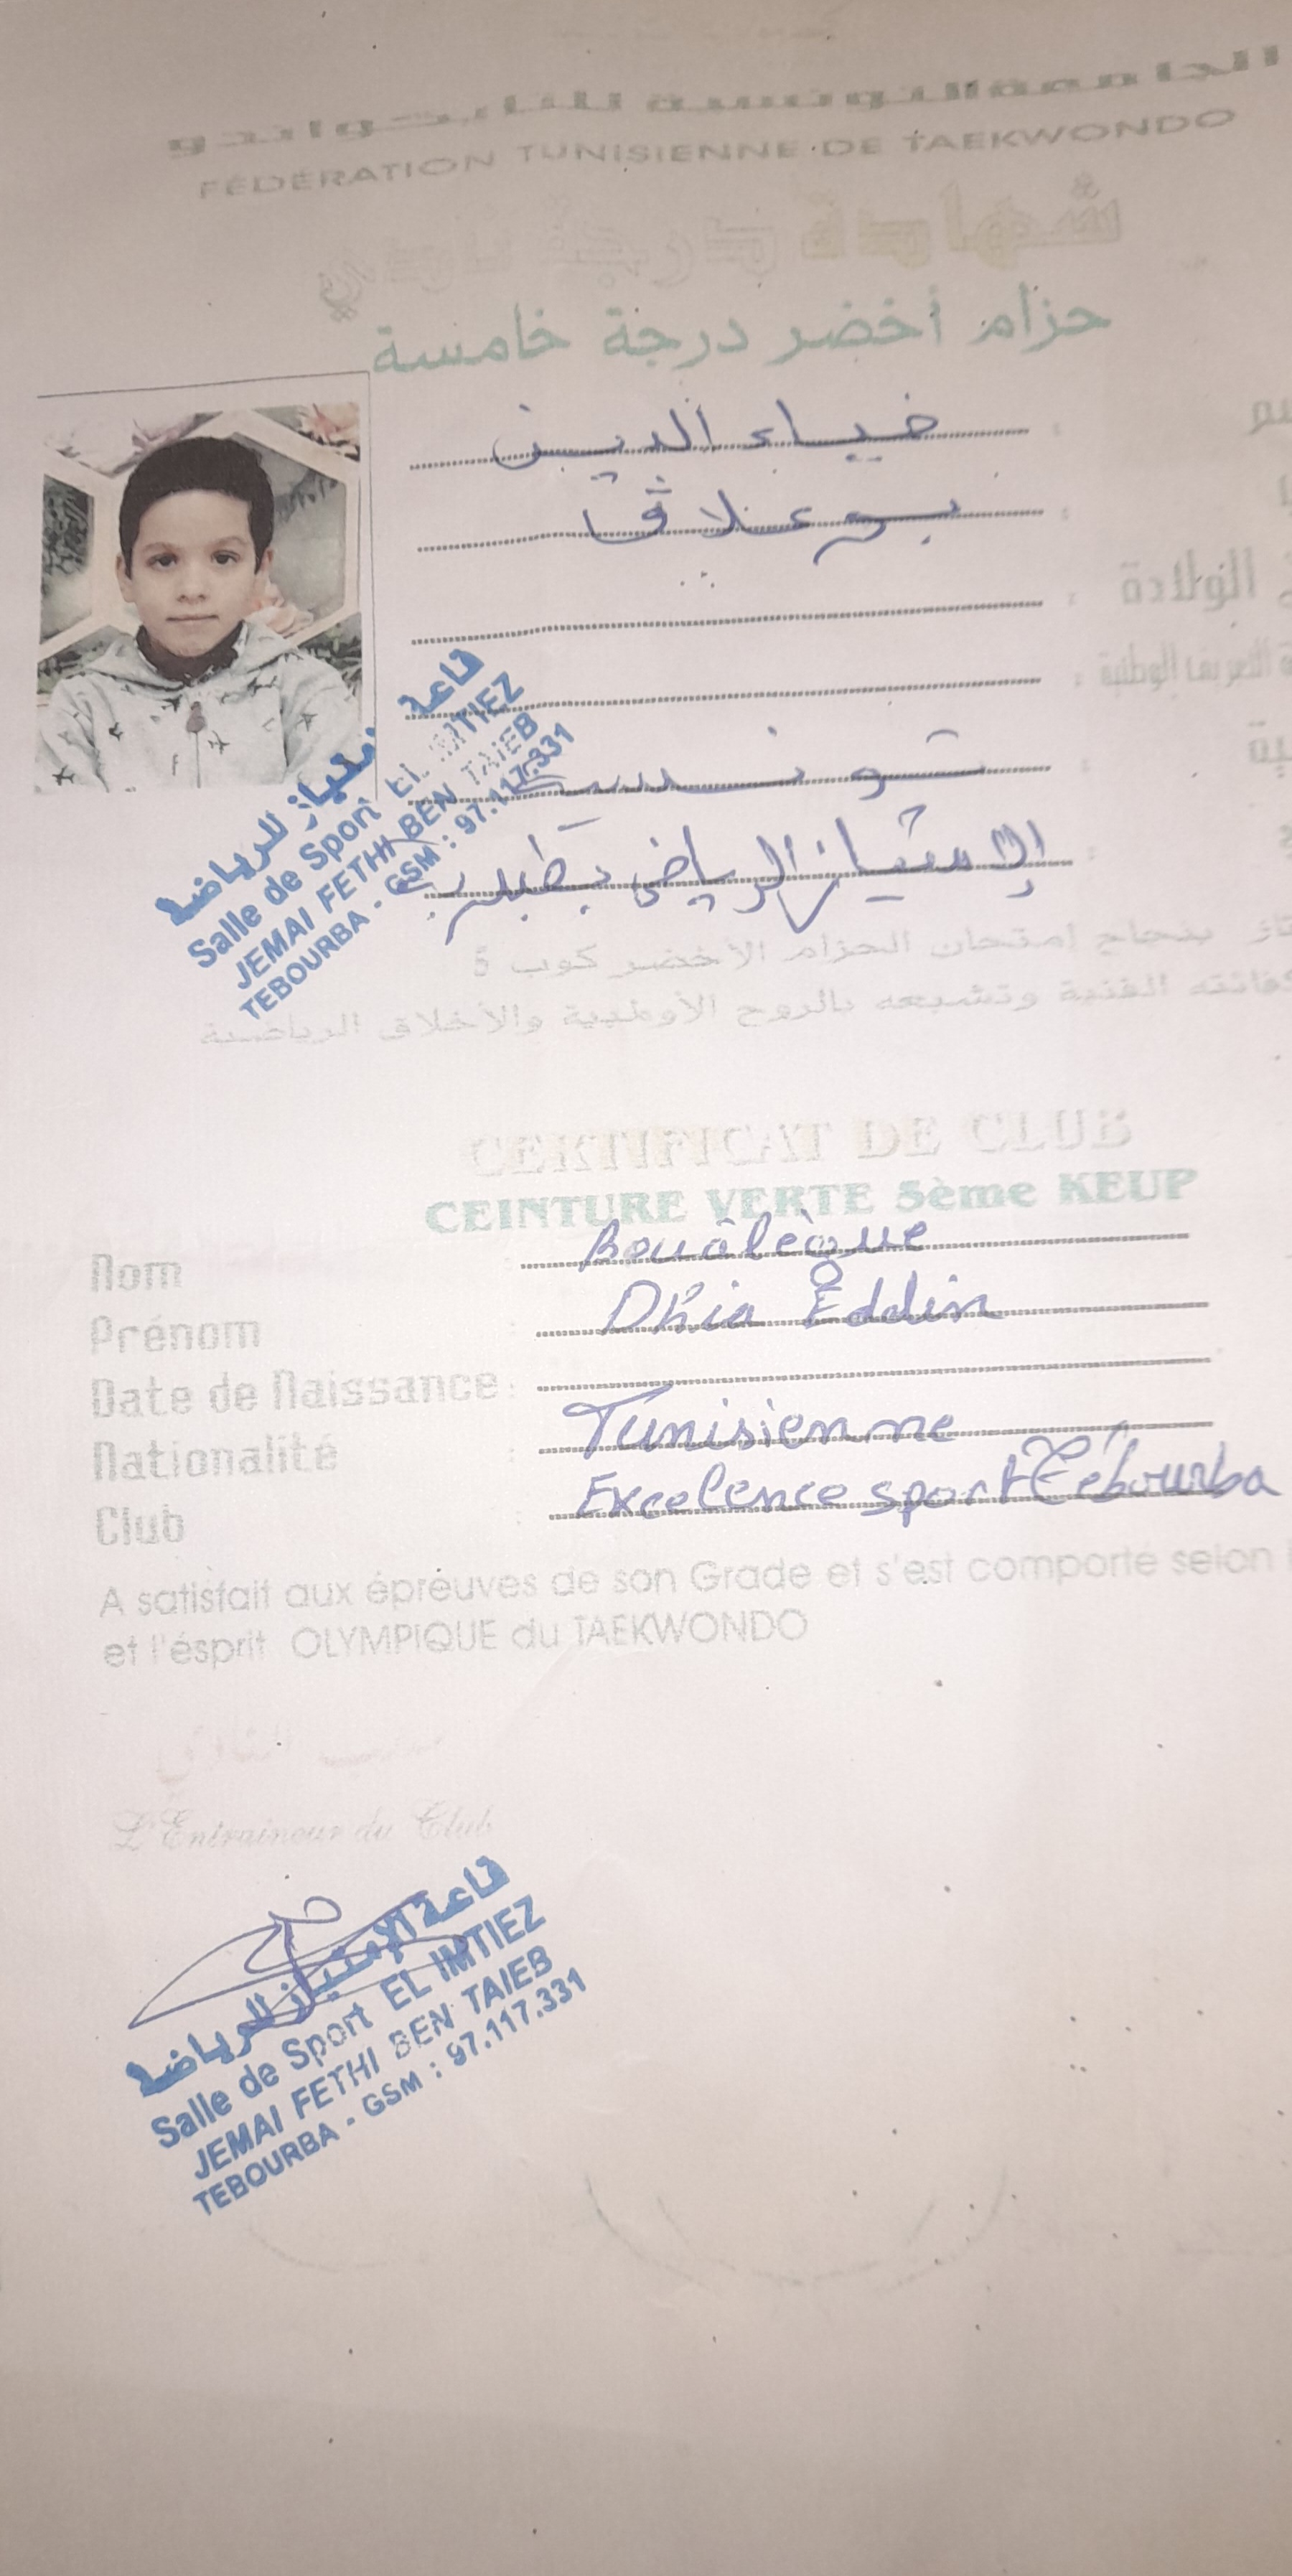 الجامعة التونسية للتايكواندو
FÉDÉRATION TUNISIENNE DE TAEKWONDO
شهادة درجة نادي
حزام أخضر درجة خامسة
ضياء الدين
بوعلاڨ
الولادة
التعريف الوطنية
تونسية
الامتياز الرياضي بطبربة
بنجاح إمتحان الحزام الأخضر كوب 5
الفنية وتشبعه بالروح الأولمبية والأخلاق الرياضية
قاعة
الامتياز للرياضة
Salle de Sport EL IMTIEZ
JEMAI FETHI BEN TAIEB
TEBOURBA - GSM : 97.117.331
CERTIFICAT DE CLUB
CEINTURE VERTE 5ème KEUP
Nom : Bouâlègue
Prénom Dhia Eddin
Date de Naissance :
Nationalité : Tunisienne
Club : Excelence sport Tébourba
A satisfait aux épreuves de son Grade et s'est comporté selon
et l'ésprit OLYMPIQUE du TAEKWONDO
L'Entraineur du Club
قاعة الإمتياز للرياضة
Salle de Sport EL IMTIEZ
JEMAI FETHI BEN TAIEB
TEBOURBA - GSM : 97.117.331